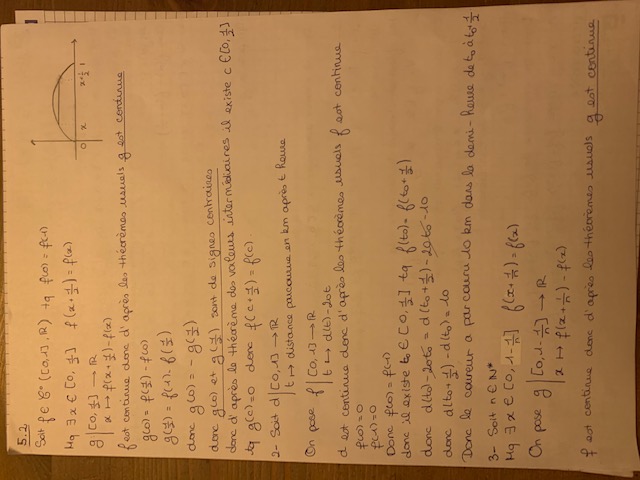 5.2
Soit f ∈ C⁰([0,1], ℝ) tq f(0) = f(1)
Mq ∃ x ∈ [0, 1/2] f(x + 1/2) = f(x)
g | [0, 1/2] → ℝ
x ↦ f(x + 1/2) - f(x)
f est continue donc d'après les théorèmes usuels g est continue
g(0) = f(1/2) - f(0)
g(1/2) = f(1) - f(1/2)
donc g(0) = - g(1/2)
donc g(0) et g(1/2) sont de signes contraires
donc d'après le théorème des valeurs intermédiaires il existe c ∈ [0, 1/2]
tq g(c) = 0 donc f(c + 1/2) = f(c)
0 x x+1/2 1
2- Soit d | [0,1] → ℝ
t ↦ distance parcourue en km après t heure
On pose f | [0,1] → ℝ
t ↦ d(t) - 20t
d est continue donc d'après les théorèmes usuels f est continue
f(0) = 0
f(1) = 0
Donc f(0) = f(1)
donc il existe t₀ ∈ [0, 1/2] tq f(t₀) = f(t₀ + 1/2)
donc d(t₀) - 20t₀ = d(t₀ + 1/2) - 20t₀ - 10
donc d(t₀ + 1/2) - d(t₀) = 10
Donc le coureur a parcouru 10 km dans la demi-heure de t₀ à t₀ + 1/2
3- Soit n ∈ ℕ*
Mq ∃ x ∈ [0, 1 - 1/n] f(x + 1/n) = f(x)
On pose g | [0, 1 - 1/n] → ℝ
x ↦ f(x + 1/n) - f(x)
f est continue donc d'après les théorèmes usuels g est continue